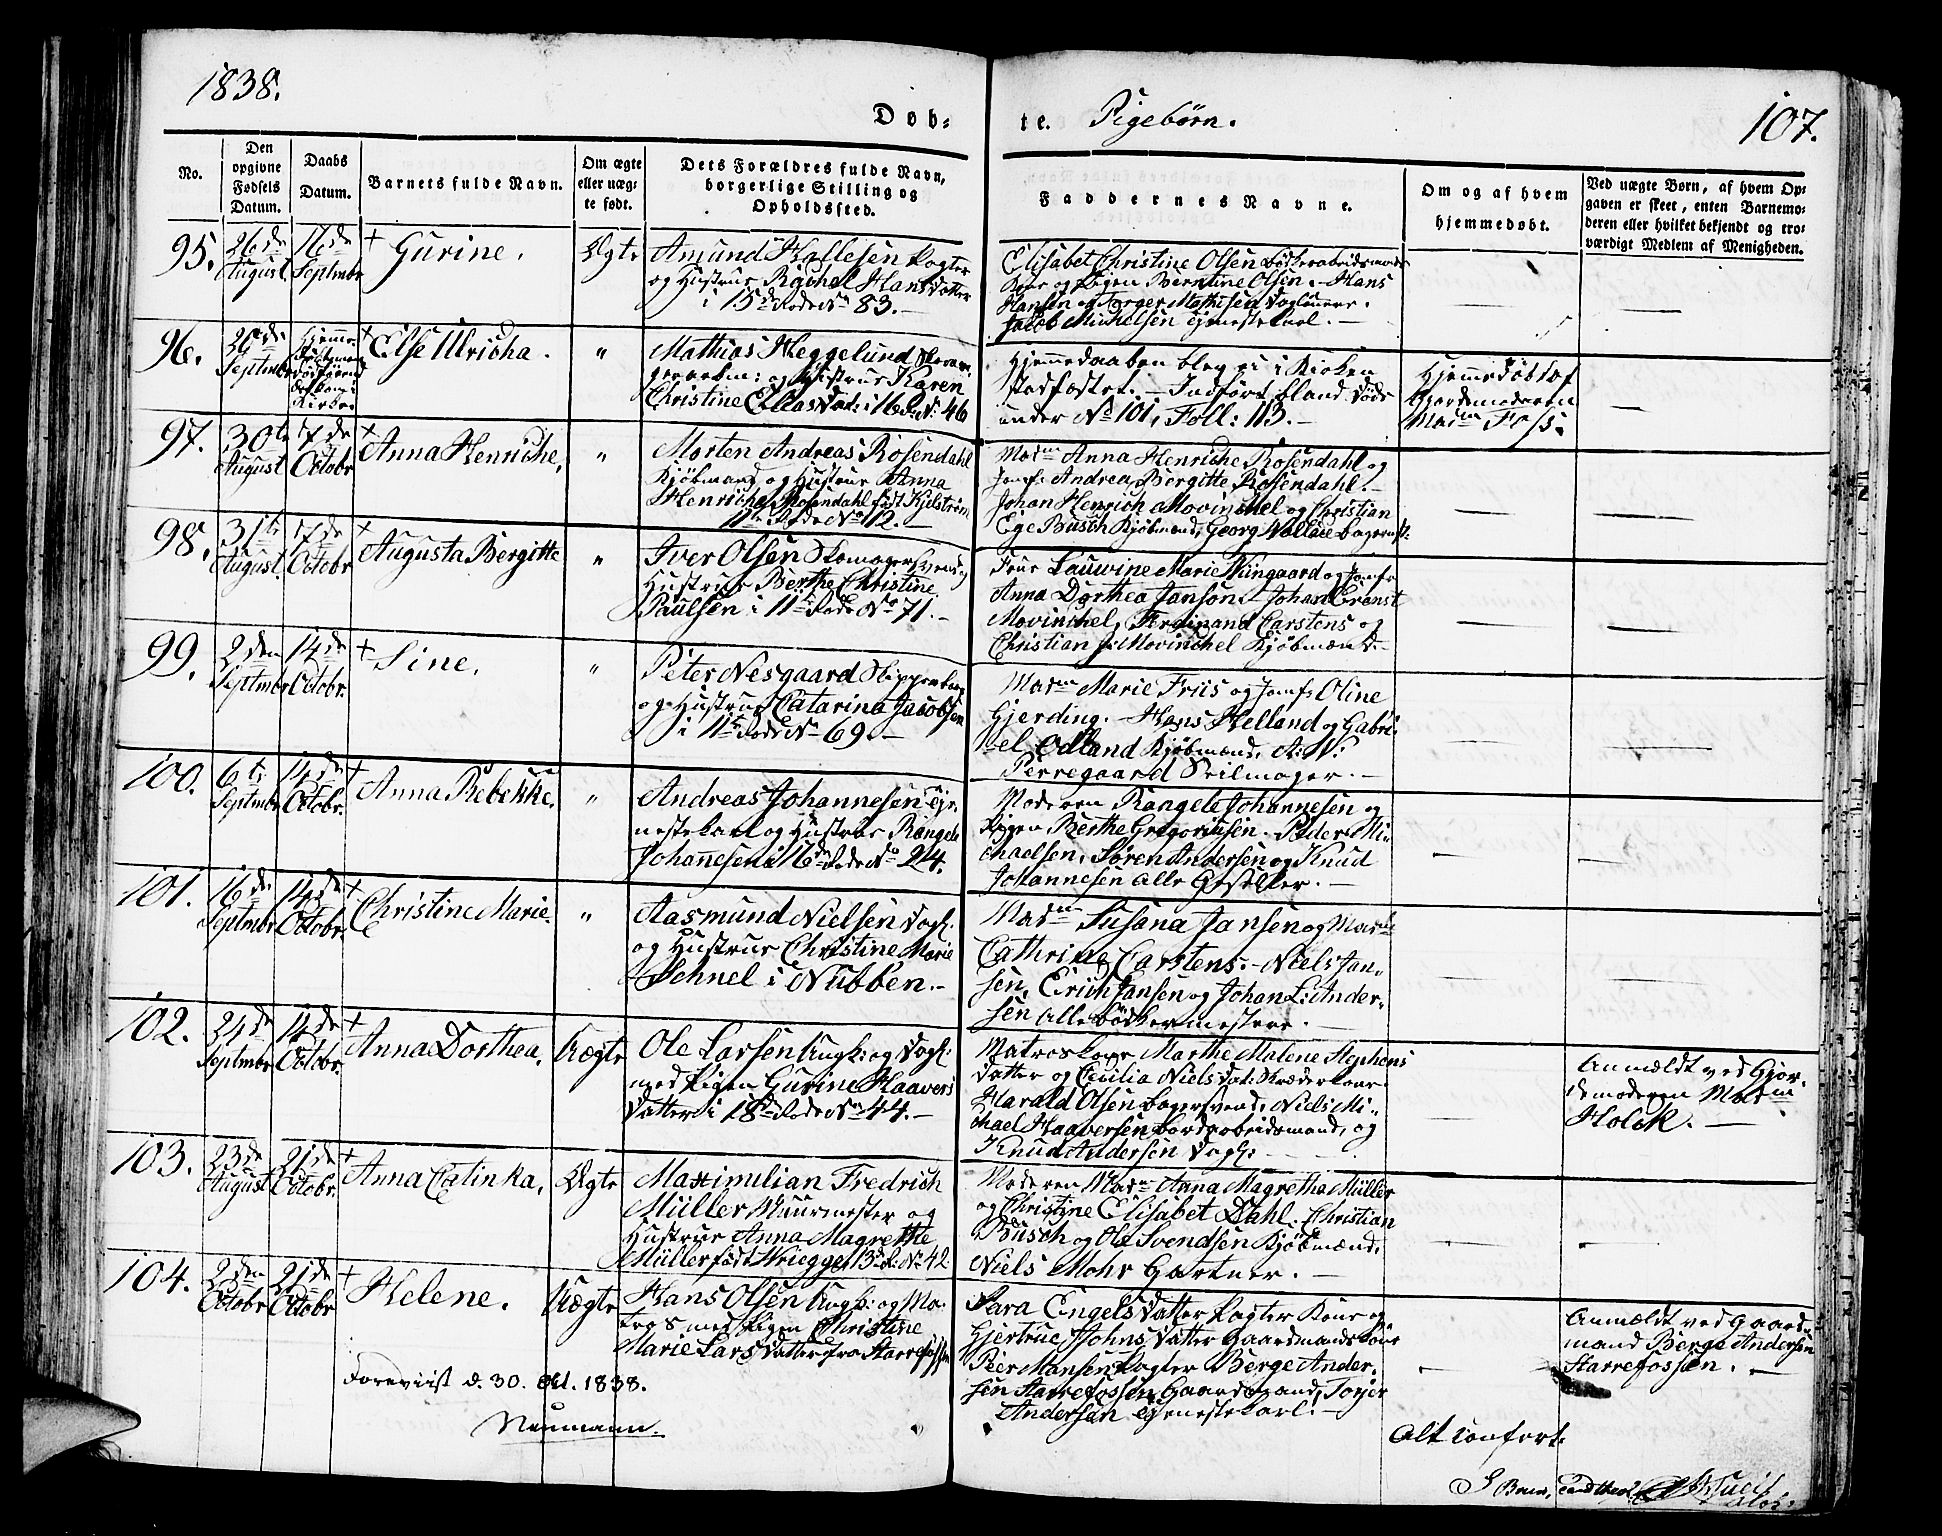 1838.
Döb-
te. Pigebørn.
107.
No.
Den opgivne Fødsels Datum.
Daabs Datum.
Barnets fulde Navn.
Om ægte eller uægte født.
Dets Forældres fulde Navn, borgerlige Stilling og Opholdssted.
Faddernes Navne.
Om og af hvem hjemmedøbt.
Ved uægte Børn, af hvem Opgaven er skeet, enten Barnemoderen eller hvilket bekjendt og troværdigt Medlem af Menigheden.
95.
26de August
16de Septmbr
+ Gurine.
Ægte
Amund Hallesen
og Hustrue Rachel Hansdatter
i 15de Rode No 83.—
Elisabet Christine Olsen bødkerarbeidsmands
Kone og Pigen Berntine Olsen.- Hans
Hansen og Torger Mathisen Dagleiere.
Jacob Michelsen tjenestekarl.—
96.
20de Septmbr
+ Else Ulricha.
"
Mathias Heggelund
og Hustrue Karen
Christine Eliasdat: i 16 R. No 46
Hjemmedaaben blev ei i Kirken
stadfæstet.— Indført bland Døde
under No 101, Foll: 113.—
Hjemmedøbt af
Gjordemoderen
Madm Foss.
97.
30te August
7de Octobr
+ Anna Henriche,
"
Morten Andreas Rosendahl
Kjøbmand og Hustrue Anna
Henriche Rosendahl født Kjelstrøm
11te Rode No 12.—
Madm Anna Henriche Rosendahl og
Jomf: Andrea Bergitte Rosendahl.—
Johan Henrich Movinchel og Christian
Ege Busch Kjøbmænd, Georg Wallace
98.
31te August.
7de Octobr
+ Augusta Bergitte
"
Iver Olsen Skomagersvend og
Hustrue Berthe Christine
Paulsen i 11te Rode No 71.—
Frue Lauwine Marie Niingaard og Jomfr
Anna Dorthea Janson. Johan Ernst
Movinchel, Ferdinand Carstens og
Christian Movinchel Kjøbmænd.—
99.
2den Septmbr
14de Octobr.
+ Sine.
"
Peter Nesgaard Skipper
og Hustrue Catarina Jacobsen
i 11te Rode No 69.—
Madm Marie Friis og Jomf: Oline
Gjerding.— Hans Helland og Gabri-
el Odland Kjøbmænd, A: N:
Perregaard Seilmager.—
100.
6te Septmbr
14de Octobr.
+ Anna Rebekke,
"
Andreas Johannesen Tje-
nestekarl og Hustrue Rangele
Johannesen i 16de Rode No 24.
Moderen Rangele Johannesen og
Pigen Berthe Gregoriusen. Peder Mi-
chaelsen, Søren Andersen og Knud
Johannesen alle Geseller.—
101.
16de Septmbr
14de Octobr.
+ Christine Marie
"
Aasmund Nielsen Dagl:
og Hustrue Christine Marie
Schnel i Nubben.—
Madm Susana Jansen og Madm
Cathrine Carstens.- Niels Jan-
sen, Erich Jansen og Johan L: Ander-
sen alle bødkermestere.—
102.
24de Septmbr
14de Octobr.
+ Anna Dorthea,
Uægte
Ole Larsen Ungk: og Dagl:
med Pigen Gurine Haavers
datter i 18de Rode No 44.—
Matroskone Marthe Malene Stephens
datter og Cecilia Nielsdat: Skræderkone
Harald Olsen bagersvend, Niels Mi-
chael Haaversen bordarbeidsmand, og
Knud Andersen Dagl:
Anmældt ved Gjor-
demoderen Madm
Holck.—
103.
23de August
21de Octobr.
+ Anna Catinka,
Ægte
Maximilian Fredrich
Müller Muurmester og
Hustrue Anna Magrethe
Müller født Kriegge, 13de R: No 42
Moderen Madm Anna Magretha Müller
og Christine Elisabet Dahl. Christian
Busch og Ole Svendsen Kjøbmænd,
Niels Mohr Gartner.—
104.
2den Octobr
21de Octobr
+ Helene.
Uægte
Hans Olsen Ungk: og Ma-
tros med Pigen Christine
Marie Larsdatter fra Starrefossen
Sara Engelsdatter Pagter Kone og
Gjertrue Johnsdatter Gaardmandskone
Peer Mansen Pagter Berge Ander-
sen Starrefossen Gaardmand, Torjer
Andersen tjenestekarl.—
Anmældt ved Gaard-
mand Berge Andersen
Starrefossen.—
Foreviist d. 30. Oct. 1838.
Neumann.
Alt confert.